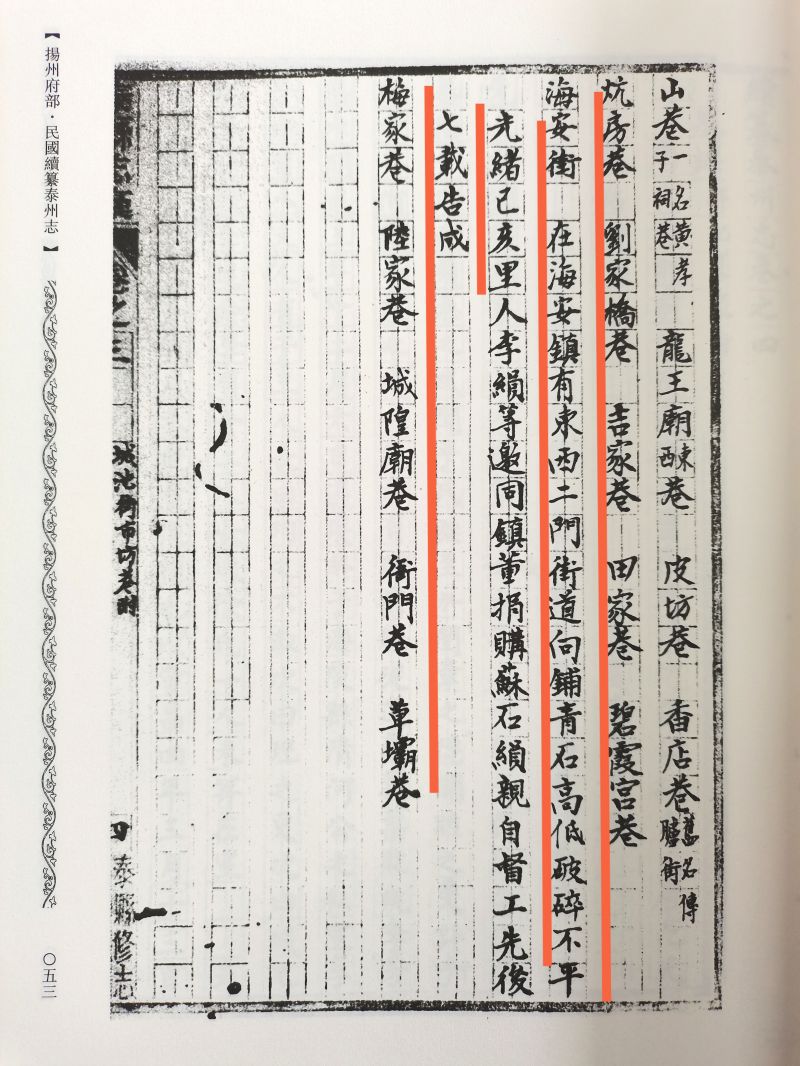 山巷一名黃孝子祠巷 龍王廟東西巷 皮坊巷 香店巷舊名傳臚街
炕房巷 劉家橋巷 吉家巷 田家巷 碧霞宮巷
海安街 在海安鎮有東西二門街道向鋪青石高低破碎不平
光緒己亥里人李緝等邀同鎮董捐購蘇石緝親自督工先後
七載告成
梅家巷 陸家巷 城隍廟巷 衙門巷 草壩巷
卷之三
城池街市坊巷
四
泰縣修志
【揚州府部·民國續纂泰州志】
〇五三